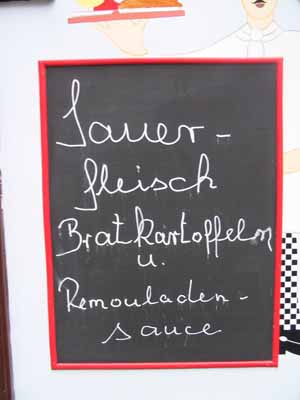 Sauer-
fleisch
Bratkartoffeln
u.
Remouladen-
sauce